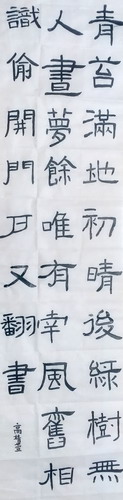 青苔滿地初晴後綠樹無
人晝夢餘唯有南風舊相
識偷開門戶又翻書
高